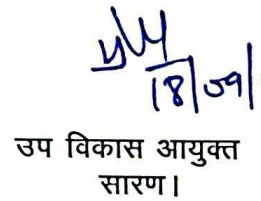 18/09/
उप विकास आयुक्त
सारण।